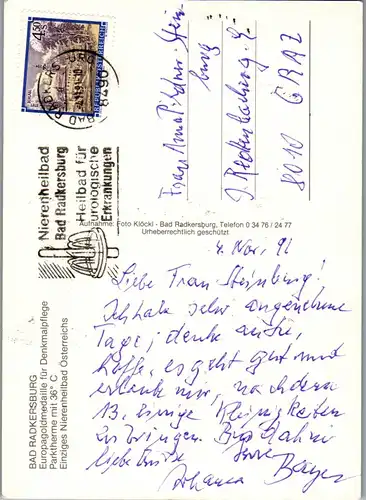 4.50 S
REPUBLIK ÖSTERREICH
BAD RADKERSBURG
8490
Nierenheilbad
Bad Radkersburg
Heilbad für
urologische
Erkrankungen
Frau Anna
burg
8010 GRAZ
Aufnahme: Foto Klöckl - Bad Radkersburg, Telefon 0 34 76 / 24 77
Urheberrechtlich geschützt
BAD RADKERSBURG
Europagoldmedaille für Denkmalpflege
Parktherme mit 36° C
Einziges Nierenheilbad Österreichs
4. Nov. 91
Liebe Frau Steinburg!
Ich habe sehr angenehme
Tage, denke an Sie,
hoffe, es geht gut und
erlaube mir, nach dem
13. einige Kleinigkeiten
zu bringen. Bis dahin
liebe Grüße Ihre
Johanna